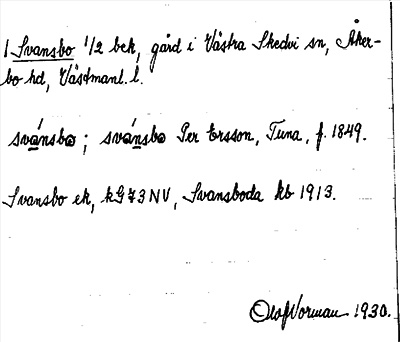 1 Svansbo 1/2 bek, gård i Västra Skedvi sn, Åker-
bo hd, Västmanl. l.
svánsbo ; svánsbo Per Ersson, Tuna, f. 1849.
Svansbo ek, kG 73 NV, Svansboda kb 1913.
Olof Norman 1930.